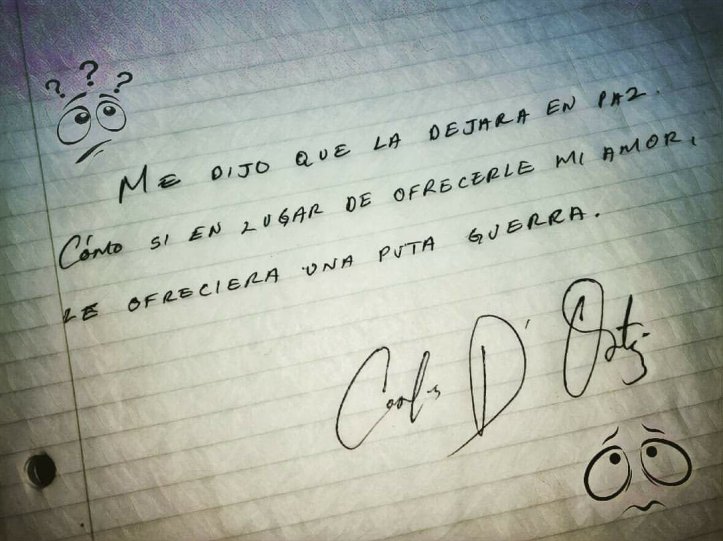 ???
ME DIJO QUE LA DEJARA EN PAZ.
CÓMO SI EN LUGAR DE OFRECERLE MI AMOR,
LE OFRECIERA UNA PUTA GUERRA.
Carlos D' Ortiz